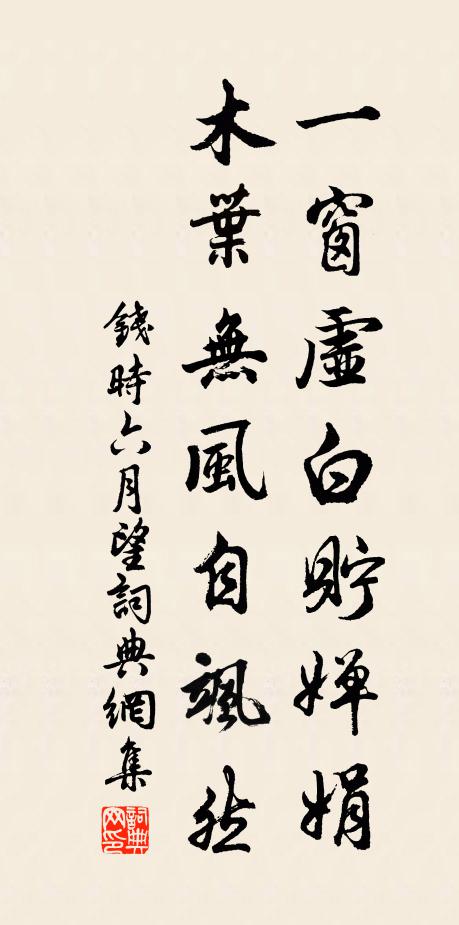 一窗虛白貯嬋娟
木葉無風自颯然
錢時六月望詞典網集
詞典網印